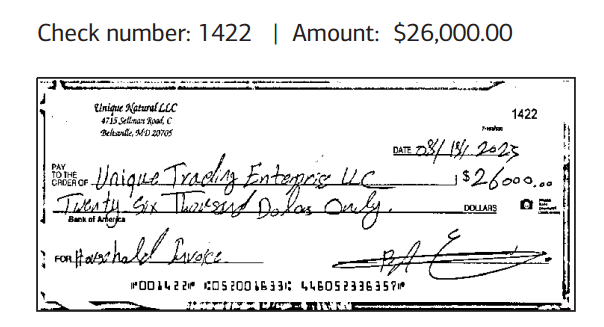 Check number: 1422 | Amount: $26,000.00
Unique Natural LLC
4715 Sellman Road, C
Beltsville, MD 20705
1422
DATE 08/18/2023
PAY TO THE ORDER OF Unique Trading Enterpris LLC $26000.00
Twenty Six Thousand Dolas Only. DOLLARS
Bank of America
FOR Household Invoice
⑈001422⑈ ⑆052001633⑆ 446052336357⑈